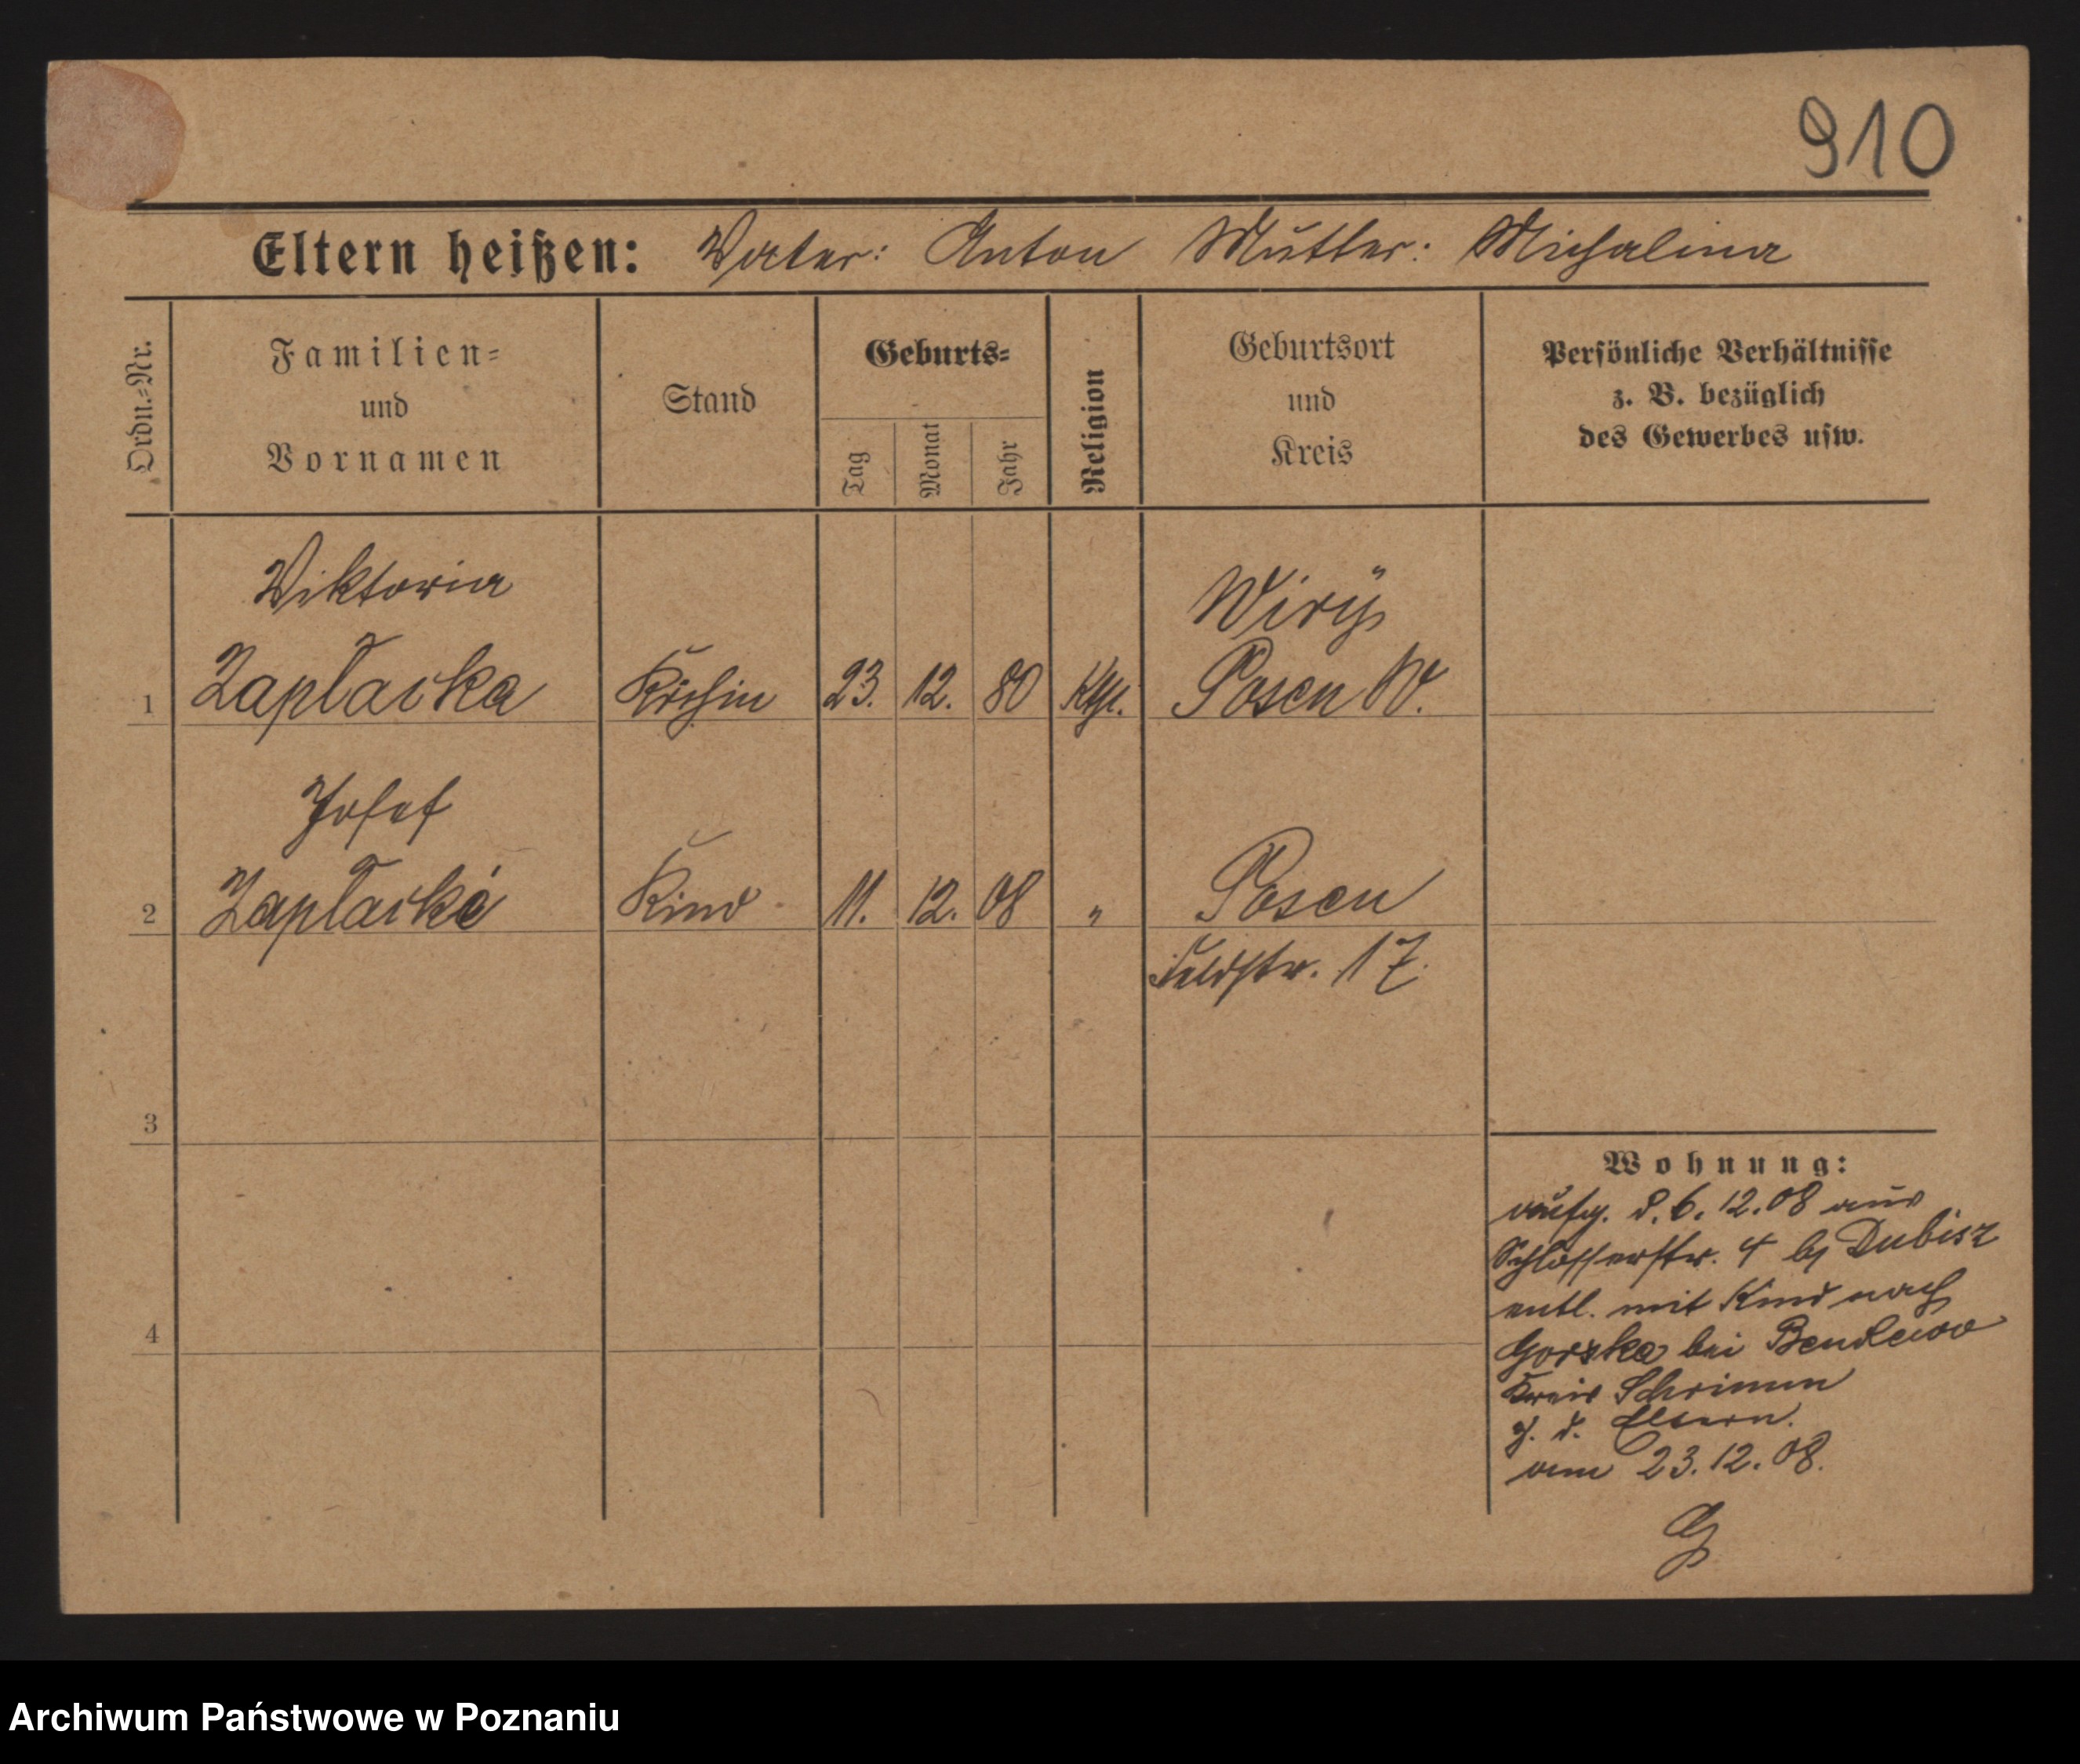 910
Eltern heißen: Vater: Anton Mutter: Michalina
Ordn.=Nr.
Familien=
und
Vornamen
Stand
Geburts=
Tag
Monat
Jahr
Religion
Geburtsort
und
Kreis
Persönliche Verhältnisse
z. B. bezüglich
des Gewerbes usw.
Viktoria Wirÿ
1 Zaptaska Köchin 23. 12. 80 Kth. Posen W.
Josef
2 Zaptaski Kind 11. 12. 08 " Posen
Feldstr. 17.
3
4
Wohnung:
aufg. d. 6. 12. 08 aus
Schlosserstr. 4 bj Dubisz
entl. mit Kind nach
Gorska bei Bendlewo
Kreis Schrimm
z. d. Eltern.
am 23. 12. 08.
G
Archiwum Państwowe w Poznaniu